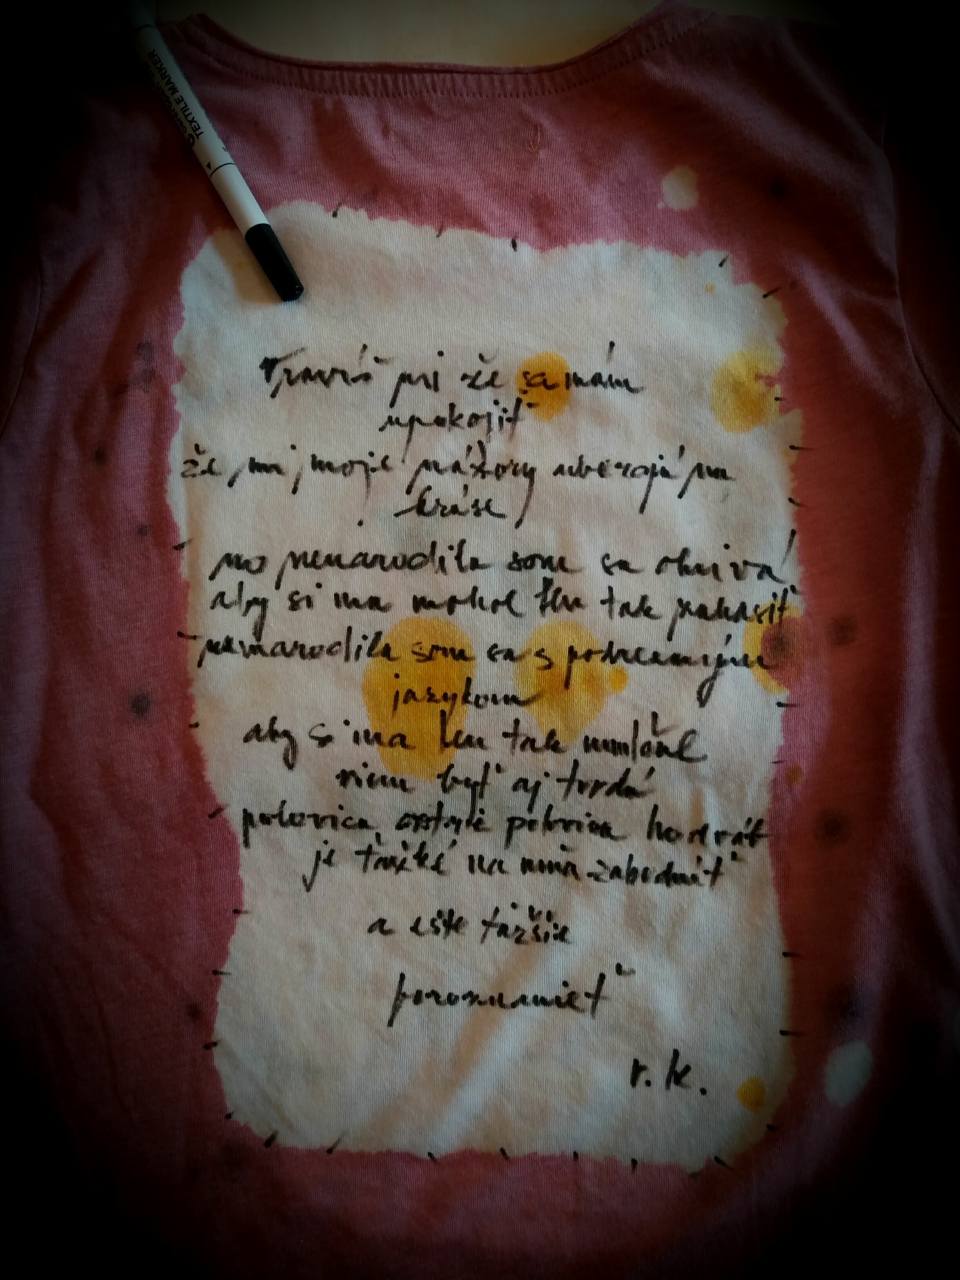 TEXTILE MARKER
Travíš mi že sa mám
upokojiť
že mi moje názory uberajú na
kráse
no nenarodila som sa ohnivá
aby si ma mohol len tak zahasiť
nenarodila som sa s podrezaným
jazykom
aby si ma len tak umlčal
viem byť aj tvrdá
polovica ostrie polovica hodváb
je ťažké na mňa zabudnúť
a ešte ťažšie
porozumieť
r.k.